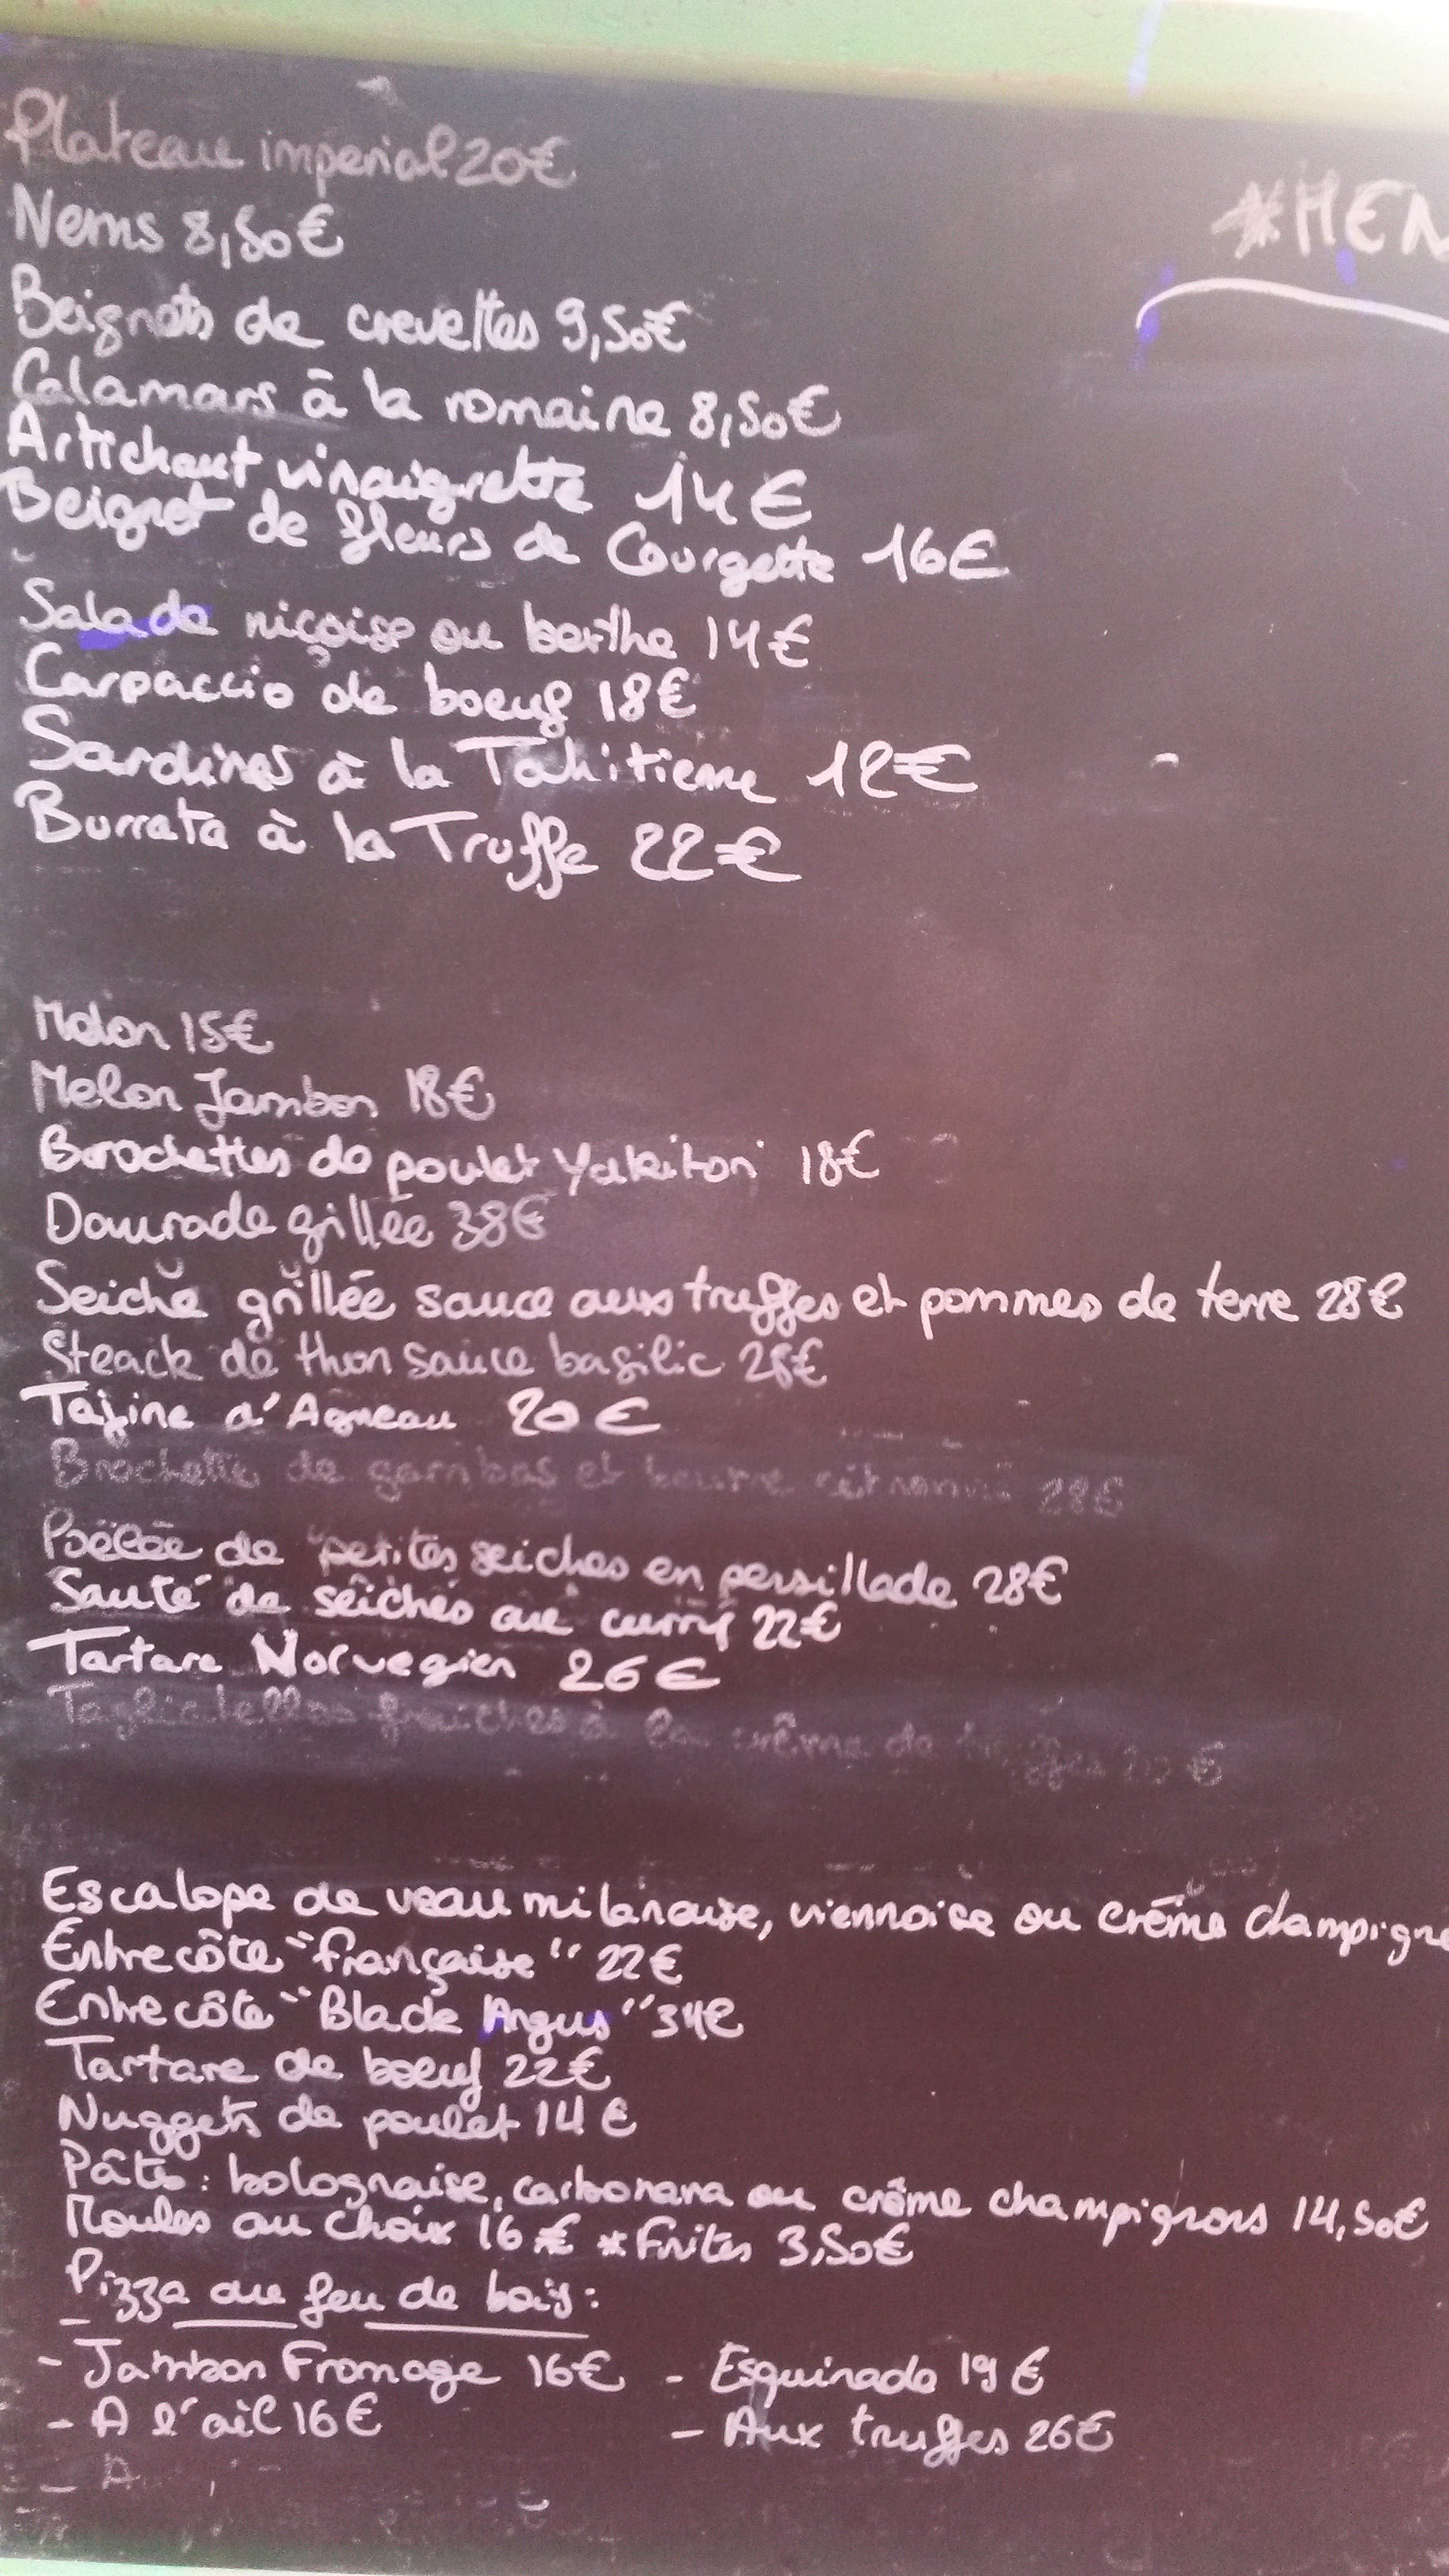 Plateau impérial 20€
*MEN
Nems 8,50€
Beignets de crevettes 9,50€
Calamars à la romaine 8,50€
Artichaut vinaigrette 14€
Beignet de fleurs de Courgette 16€
Salade niçoise ou berthe 14€
Carpaccio de boeuf 18€
Sardines à la Tahitienne 12€
Burrata à la Truffe 22€
Melon 15€
Melon Jambon 18€
Brochettes de poulet Yakitori 18€
Daurade grillée 38€
Seiche grillée sauce aux truffes et pommes de terre 28€
Steack de thon sauce basilic 28€
Tajine d'Agneau 20€
Brochette de gambas et beurre citronné 28€
Poêlée de petites seiches en persillade 28€
Sauté de seiches au curry 22€
Tartare Norvegien 26€
Tagliatelles fraiches à la crême de truffes €
Escalope de veau milanaise, viennoise ou crême champigno
Entrecôte "française" 22€
Entrecôte "Black Angus" 34€
Tartare de boeuf 22€
Nuggets de poulet 14€
Pâtes : bolognaise, carbonara ou crême champignons 14,50€
Moules au choix 16€ *Frites 3,50€
Pizza au feu de bois :
- Jambon Fromage 16€ - Esquinade 19€
- A l'ail 16€ - Aux truffes 26€